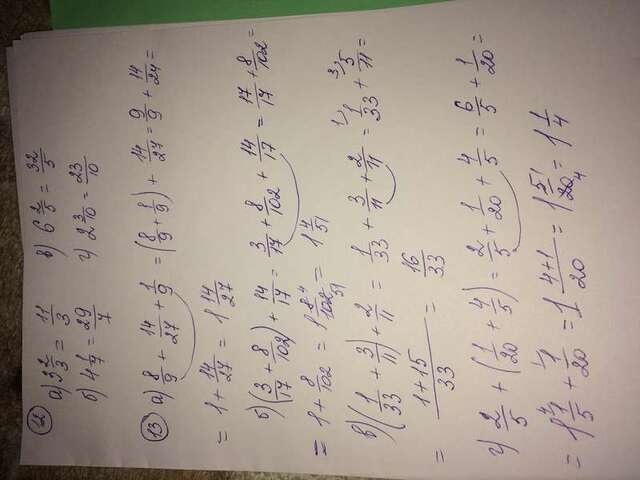 12 а) 3 2/3 = 11/3 в) 6 2/5 = 32/5
б) 4 1/7 = 29/7 г) 2 3/10 = 23/10
13 а) 8/9 + 14/27 + 1/9 = (8/9 + 1/9) + 14/27 = 9/9 + 14/27 =
= 1 + 14/27 = 1 14/27
б) (3/17 + 8/102) + 14/17 = 3/17 + 8/102 + 14/17 = 17/17 + 8/102 =
= 1 + 8/102 = 1 8⁴/102₅₁ = 1 4/51
в) (1/33 + 3/11) + 2/11 = 1/33 + 3/11 + 2/11 = ¹⁾1/33 + ³⁾5/11 =
= (1+15)/33 = 16/33
г) 2/5 + (1/20 + 4/5) = 2/5 + 1/20 + 4/5 = 6/5 + 1/20 =
= 1 ⁴⁾1/5 + ¹⁾1/20 = 1 (4+1)/20 = 1 5¹/20₄ = 1 1/4